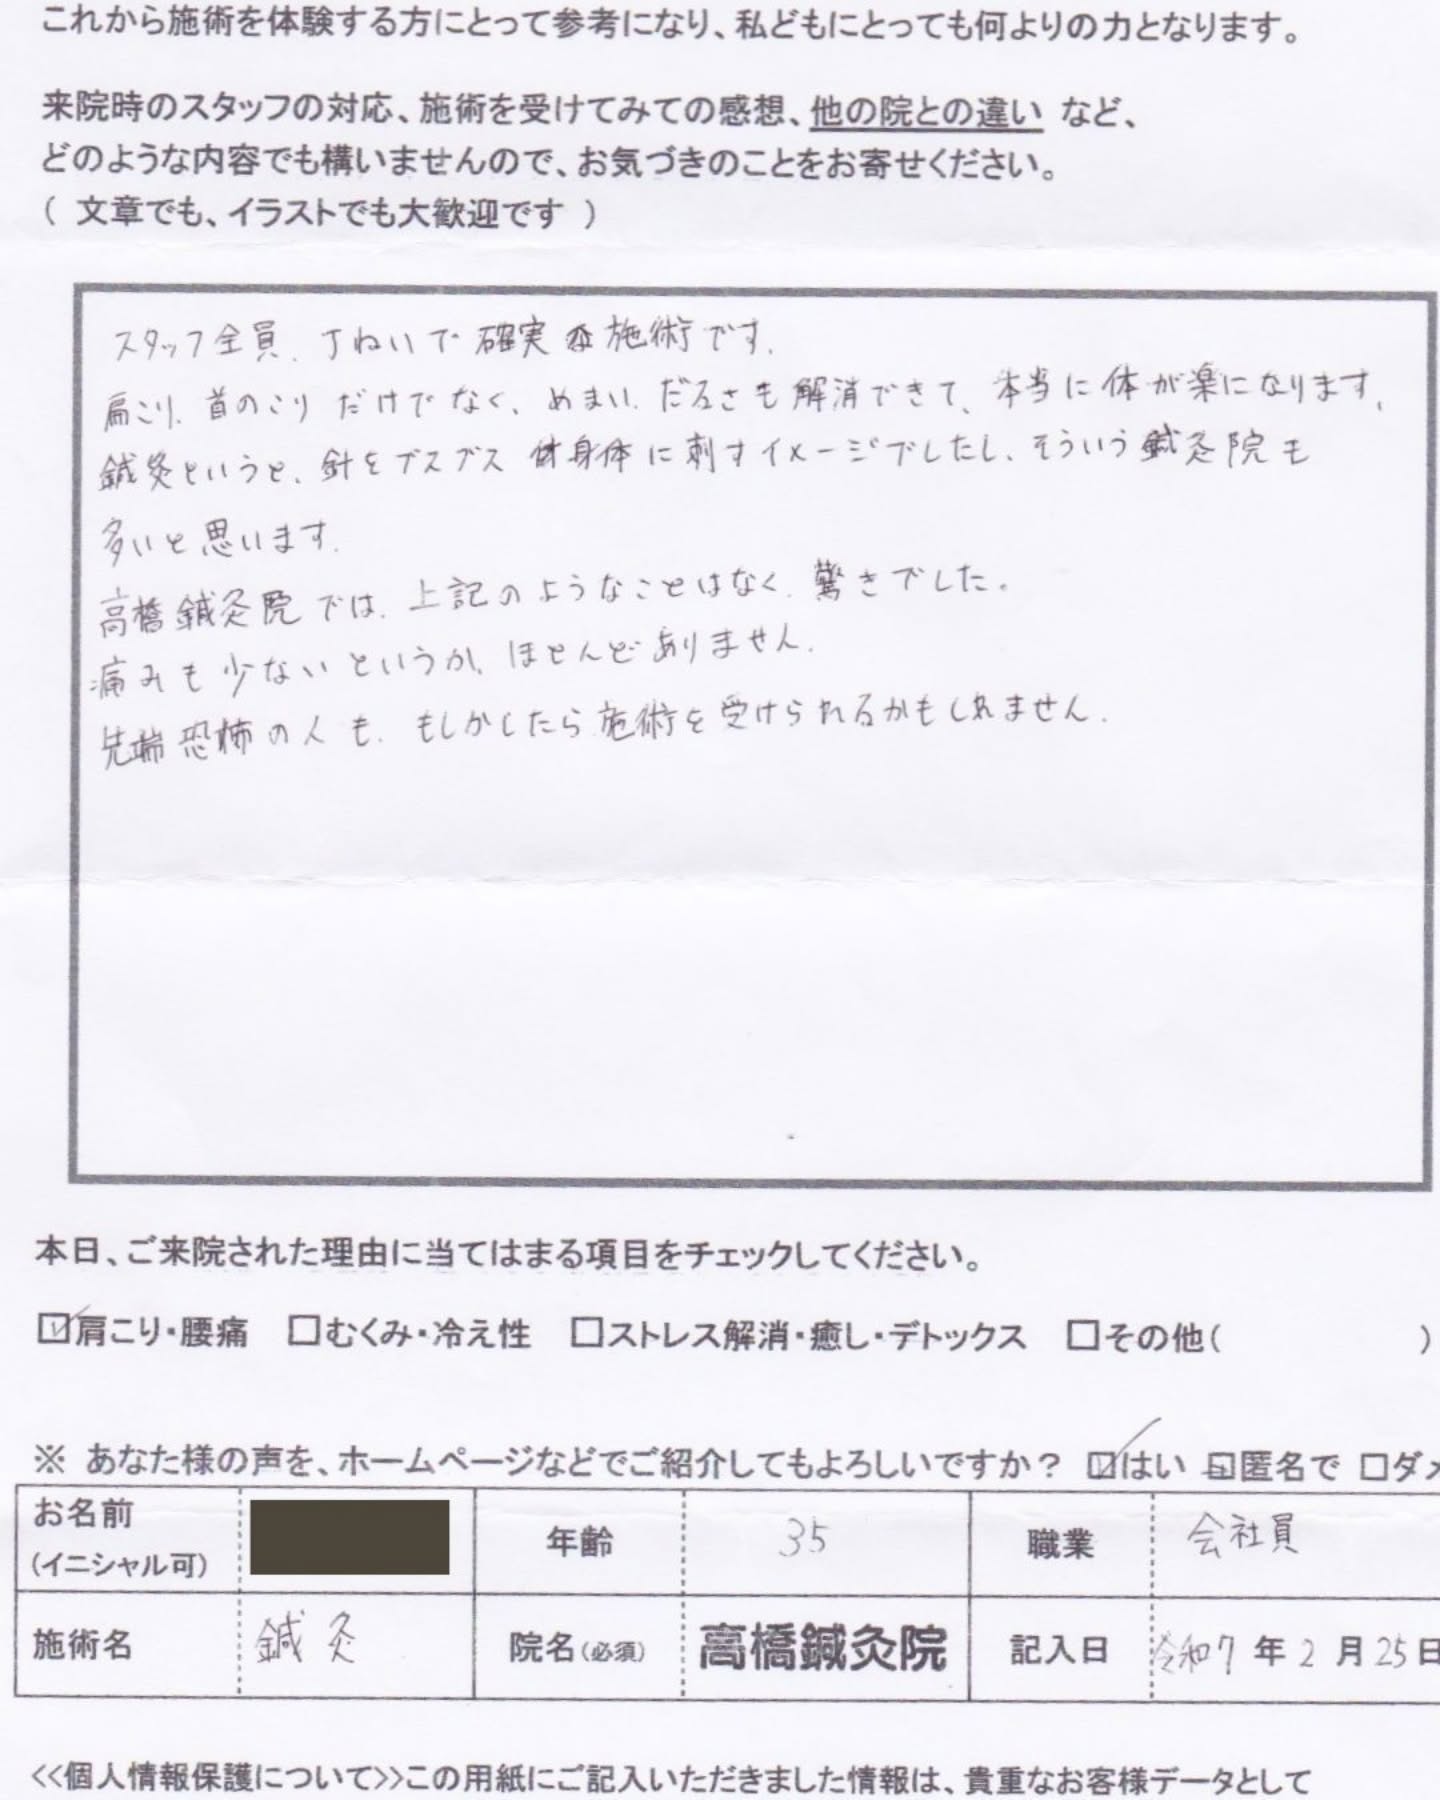 これから施術を体験する方にとって参考になり、私どもにとっても何よりの力となります。
来院時のスタッフの対応、施術を受けてみての感想、他の院との違い など、
どのような内容でも構いませんので、お気づきのことをお寄せください。
( 文章でも、イラストでも大歓迎です )
スタッフ全員、丁ねいで確実な施術です。
肩こり、首のこりだけでなく、めまい、だるさも解消できて、本当に体が楽になります。
鍼灸というと、針をブスブス身体に刺すイメージでしたし、そういう鍼灸院も
多いと思います。
高橋鍼灸院では、上記のようなことはなく、驚きでした。
痛みも少ないというか、ほとんどありません。
先端恐怖の人も、もしかしたら施術を受けられるかもしれません。
本日、ご来院された理由に当てはまる項目をチェックしてください。
☑肩こり・腰痛 □むくみ・冷え性 □ストレス解消・癒し・デトックス □その他( )
※ あなた様の声を、ホームページなどでご紹介してもよろしいですか? ☑はい □匿名で □ダメ
お名前 年齢 35 職業 会社員
(イニシャル可)
施術名 鍼灸 院名(必須) 高橋鍼灸院 記入日 令和7年2月25日
<<個人情報保護について>>この用紙にご記入いただきました情報は、貴重なお客様データとして